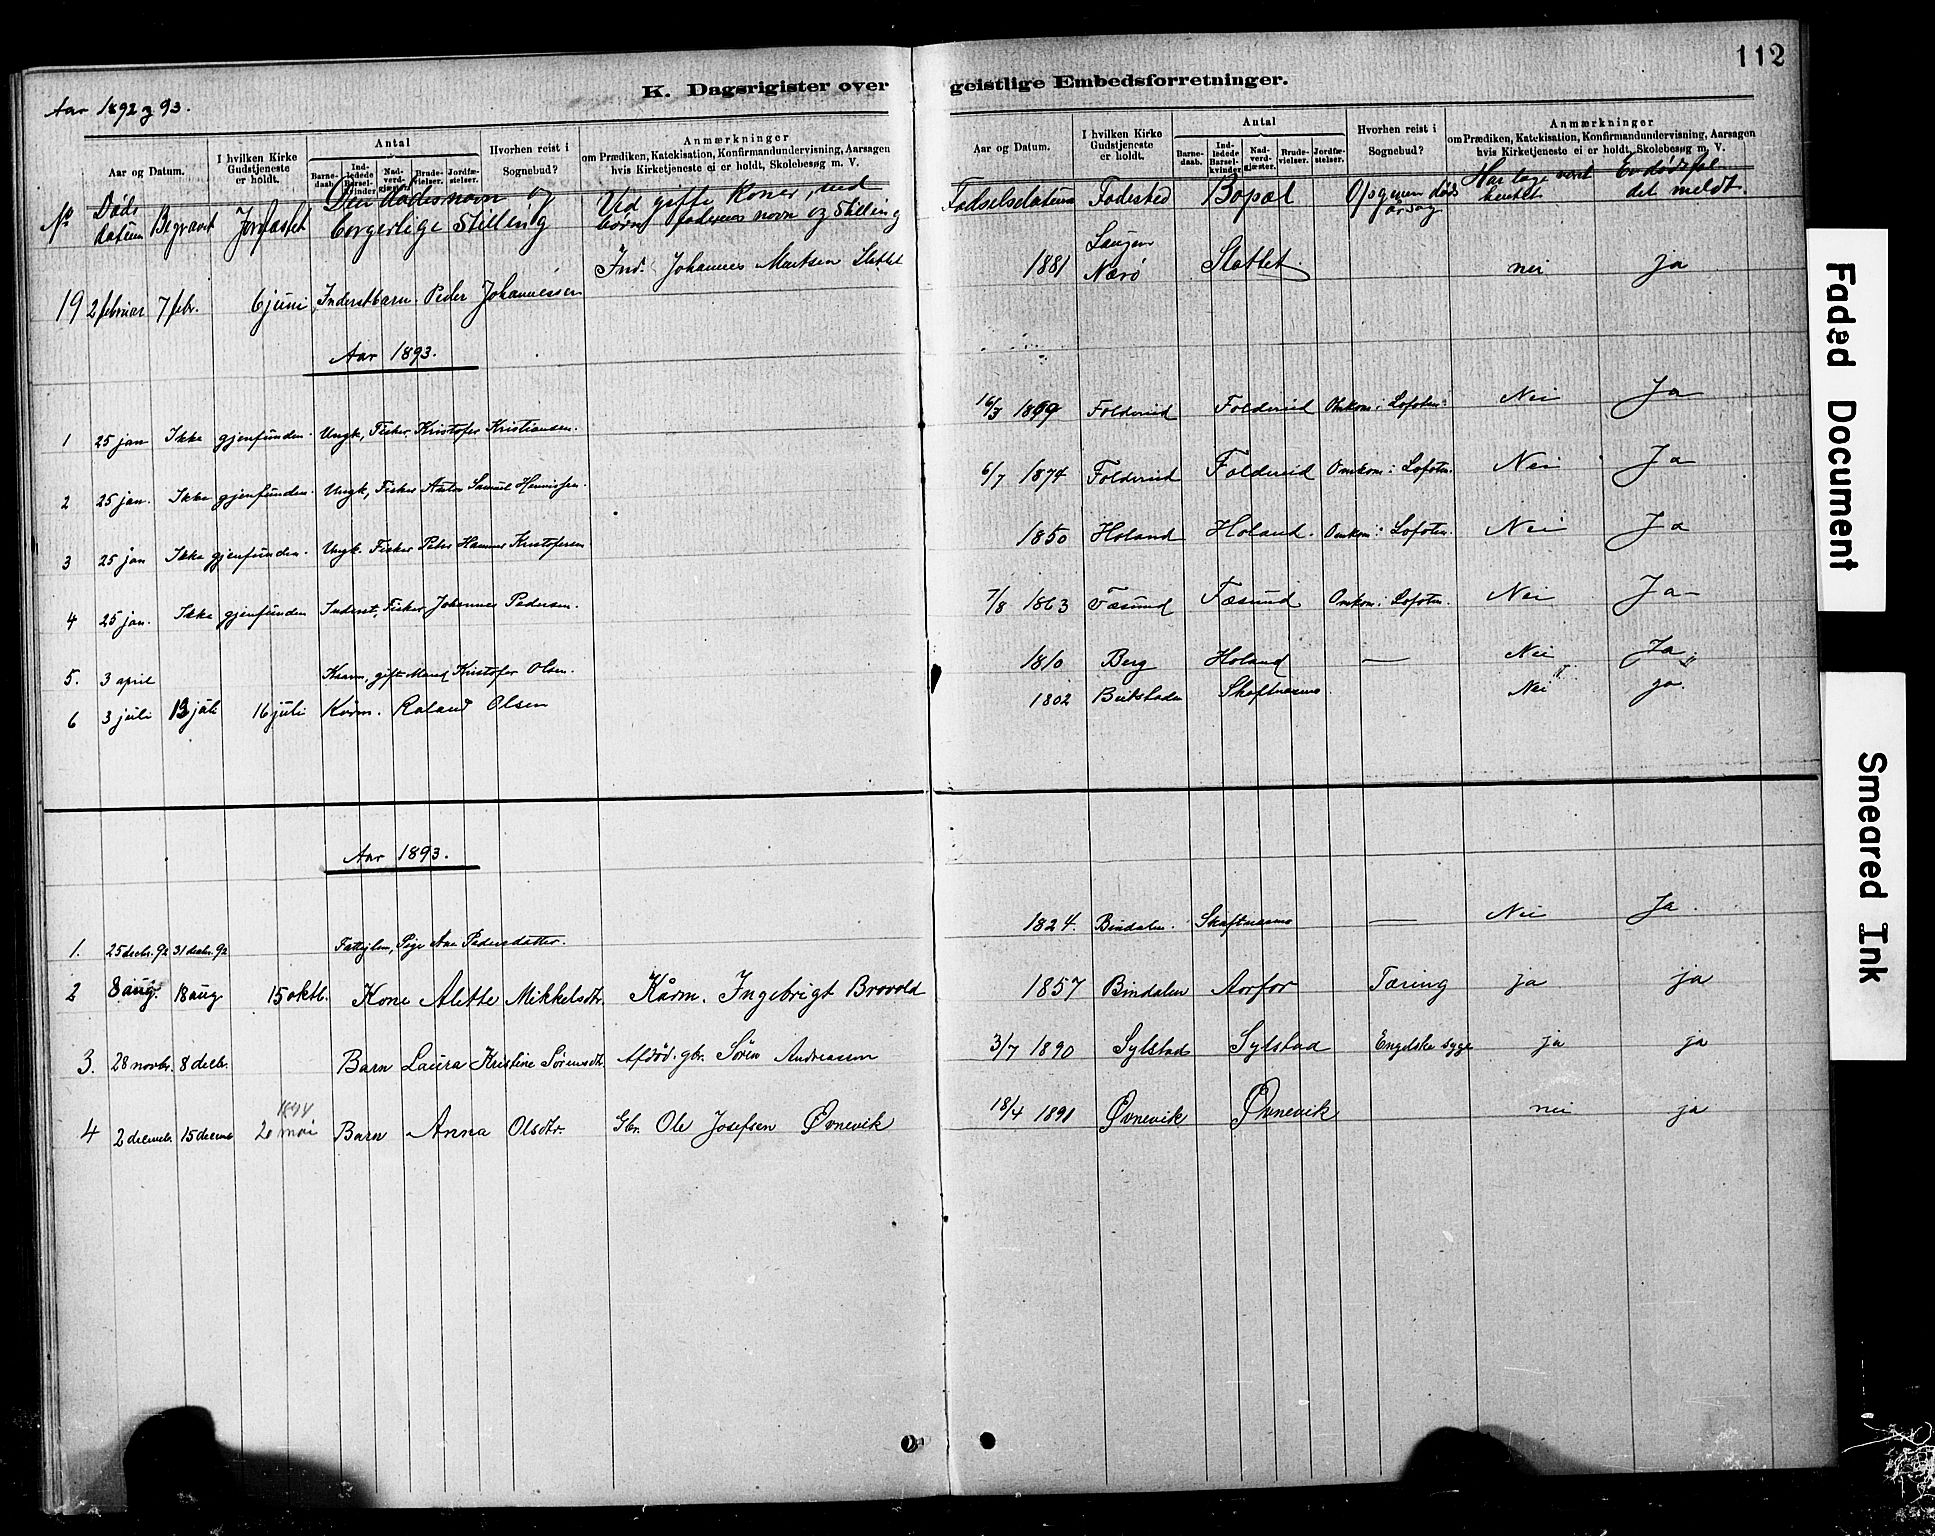 112
K. Dagsrigister over geistlige Embedsforretninger.
Aar 1892 og 93.
Aar og Datum.
I hvilken Kirke Gudstjeneste er holdt.
Antal
Barnedaab.
Indledede Barselkvinder
Nadverdgjæster.
Brudevielser.
Jordfæstelser.
Hvorhen reist i Sognebud?
Anmærkninger
om Prædiken, Katekisation, Konfirmandundervisning, Aarsagen
hvis Kirketjeneste ei er holdt, Skolebesøg m. V.
Aar og Datum.
I hvilken Kirke Gudstjeneste er holdt.
Antal
Barnedaab.
Indledede Barselkvinder
Nadverdgjæster.
Brudevielser.
Jordfæstelser.
Hvorhen reist i Sognebud?
Anmærkninger
om Prædiken, Katekisation, Konfirmandundervisning, Aarsagen
hvis Kirketjeneste ei er holdt, Skolebesøg m. V.
No Døds datum Begravet Jordfæstet Den dødes navn og borgerlige Stilling Ved gifte Koner, ved børn faderens navn og Stilling Fødselsdatum Fødested Bopæl Opgiven dødsårsag Har læge været hentet Er dødsfaldet meldt
19 2 februar 7 febr. 6 juni Inderstbarn Peder Johannessen Ind. Johannes Slettet 1881 Nærø Slettet nei ja
Aar 1893.
1 25 jan Ikke gjenfunden. Ungk, Fisker Kristofer Kristiansen. 16/3 1869 Foldereid Foldereid Omkom i Lofoten Nei Ja
2 25 jan. Ikke gjenfunden. Ungk, Fisker Samuel 6/7 1874 Foldereid Foldereid Omkom i Lofoten. Nei Ja
3 25 jan Ikke gjenfunden. Ungk. Fisker Peter Kristofersen 1850 Holand Holand. Omkom i Lofoten. Nei Ja
4 25 jan. Ikke gjenfunden Inderst, Fisker Johannes Pedersen. 7/8 1863 Fæsund Omkom i Lofoten. Nei Ja
5. 3 april gift Mand Kristofer Olsen. 1810 Berg Holand — Nei Ja
6 3 juli 13 juli 16 juli Roland Olsen 1802 Skaftnæsmo Nei ja.
Aar 1893.
1. 25 decbr. 92 31 decbr. 92 Pige Ane Pedersdatter. 1824. Bindalen. Skaftnæsmo — Nei Ja.
2 8 aug. 18 aug 15 oktb. Kone Alette Mikkelsdtr. Kårm. Ingebrigt Brovold 1857 Bindalen Aarfor Tæring ja ja
3. 28 novbr. 8 decbr. Barn Laura Kristine Sørensdtr. Afdød. gbr. Søren Andreassen 3/7 1890 Sylstad Sylstad Engelske syge ja ja
4 2 decemb. 15 decemb 1894 20 mai Barn Anna Olsdtr. Gbr. Ole Josefsen Øvnevik 18/4 1891 Øvnevik Øvnevik nei ja
Faded Document
Smeared Ink